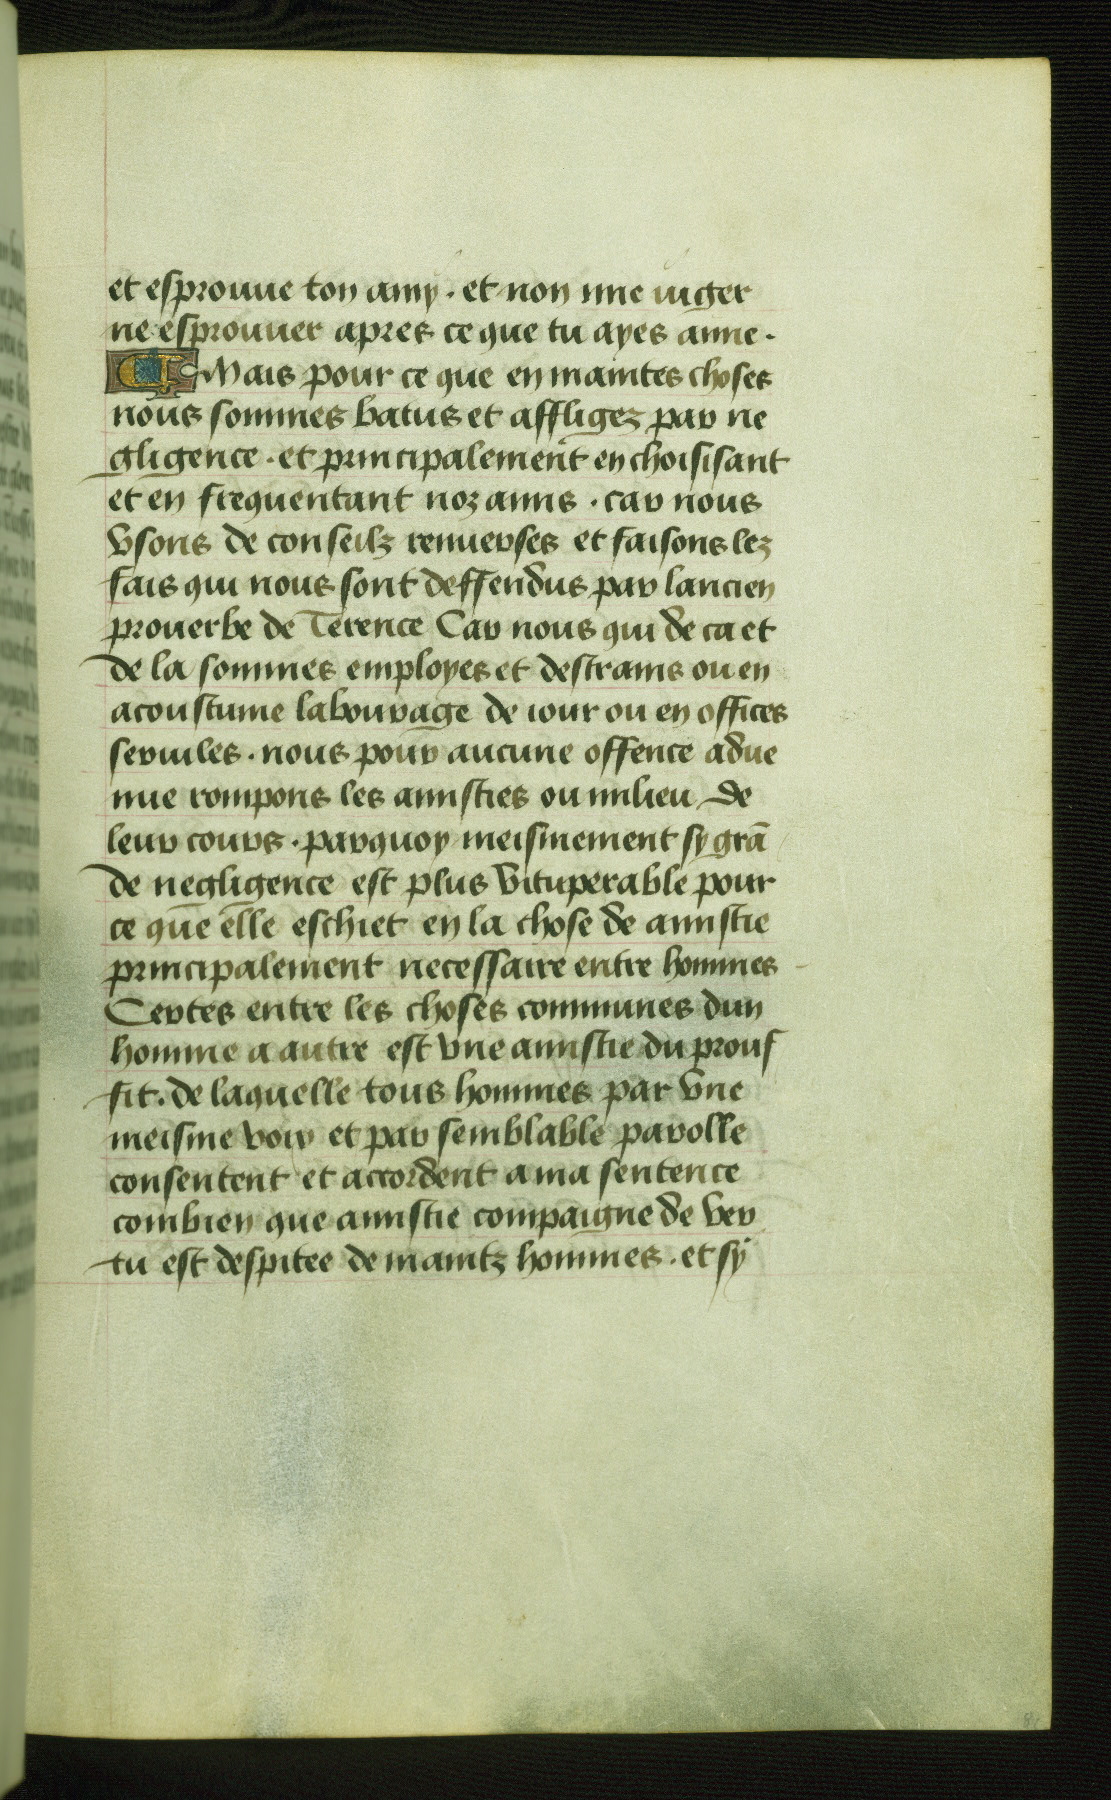 et esprouue ton amy . et non mie iuger
ne esprouuer apres ce que tu ayes ame .
Mais pour ce que en maintes choses
nous sommes batus et affligez par ne
gligence . et principalement en choisisant
et en frequentant noz amis . car nous
vsons de conseilz renuerses et faisons lez
fais qui nous sont deffendus par lancien
prouerbe de Terence Car nous qui de ca et
de la sommes employes et destrains ou en
acoustume labourage de iour ou en offices
seruiles . nous pour aucune offence adue
nue rompons les amisties ou milieu de
leur cours . parquoy meismement sy grā
de negligence est plus vituperable pour
ce que elle eschiet en la chose de amistie
principalement necessaire entre hommes
Certes entre les choses communes dun
homme a autre est vne amistie du prouf
fit . de laquelle tous hommes par vne
meisme voix et par semblable parolle
consentent et accordent a ma sentence
combien que amistie compaigne de ver
tu est despitee de maintz hommes . et sy